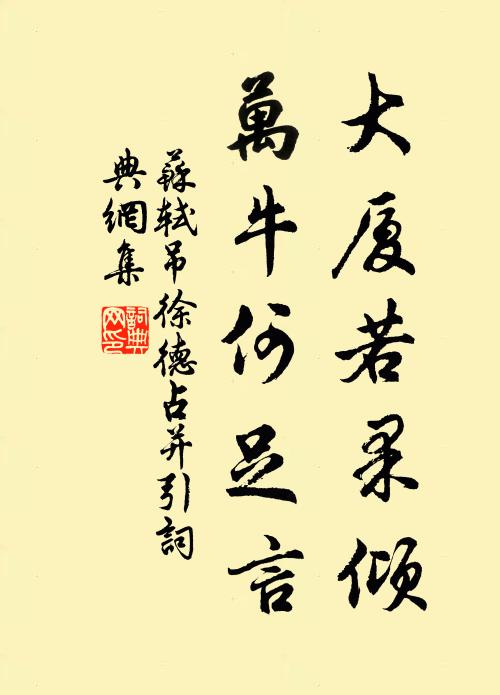 大厦若果傾
萬牛何足言
蘇軾吊徐德占并引詞
典網集
詞典
网印